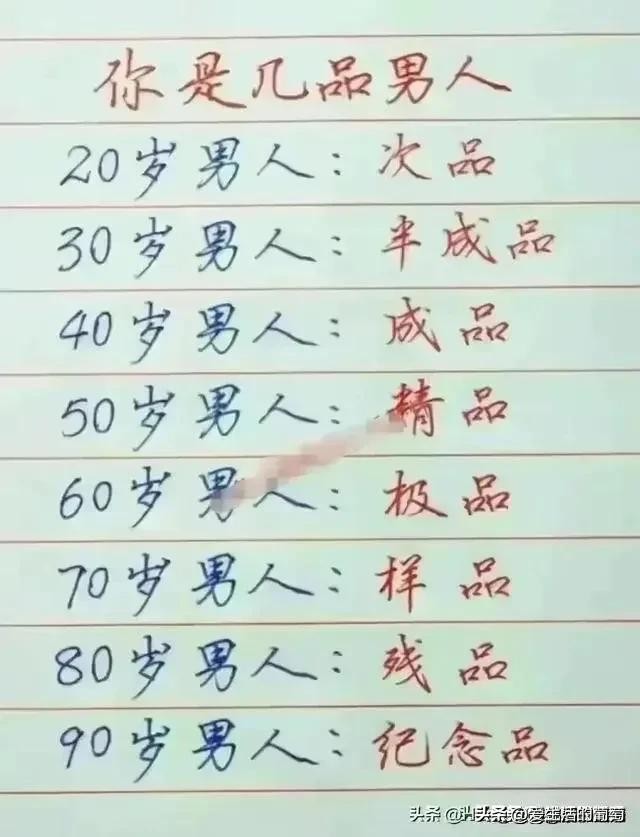 你是几品男人
20岁男人：次品
30岁男人：半成品
40岁男人：成品
50岁男人：精品
60岁男人：极品
70岁男人：样品
80岁男人：残品
90岁男人：纪念品
头条 @爱生活的葡萄